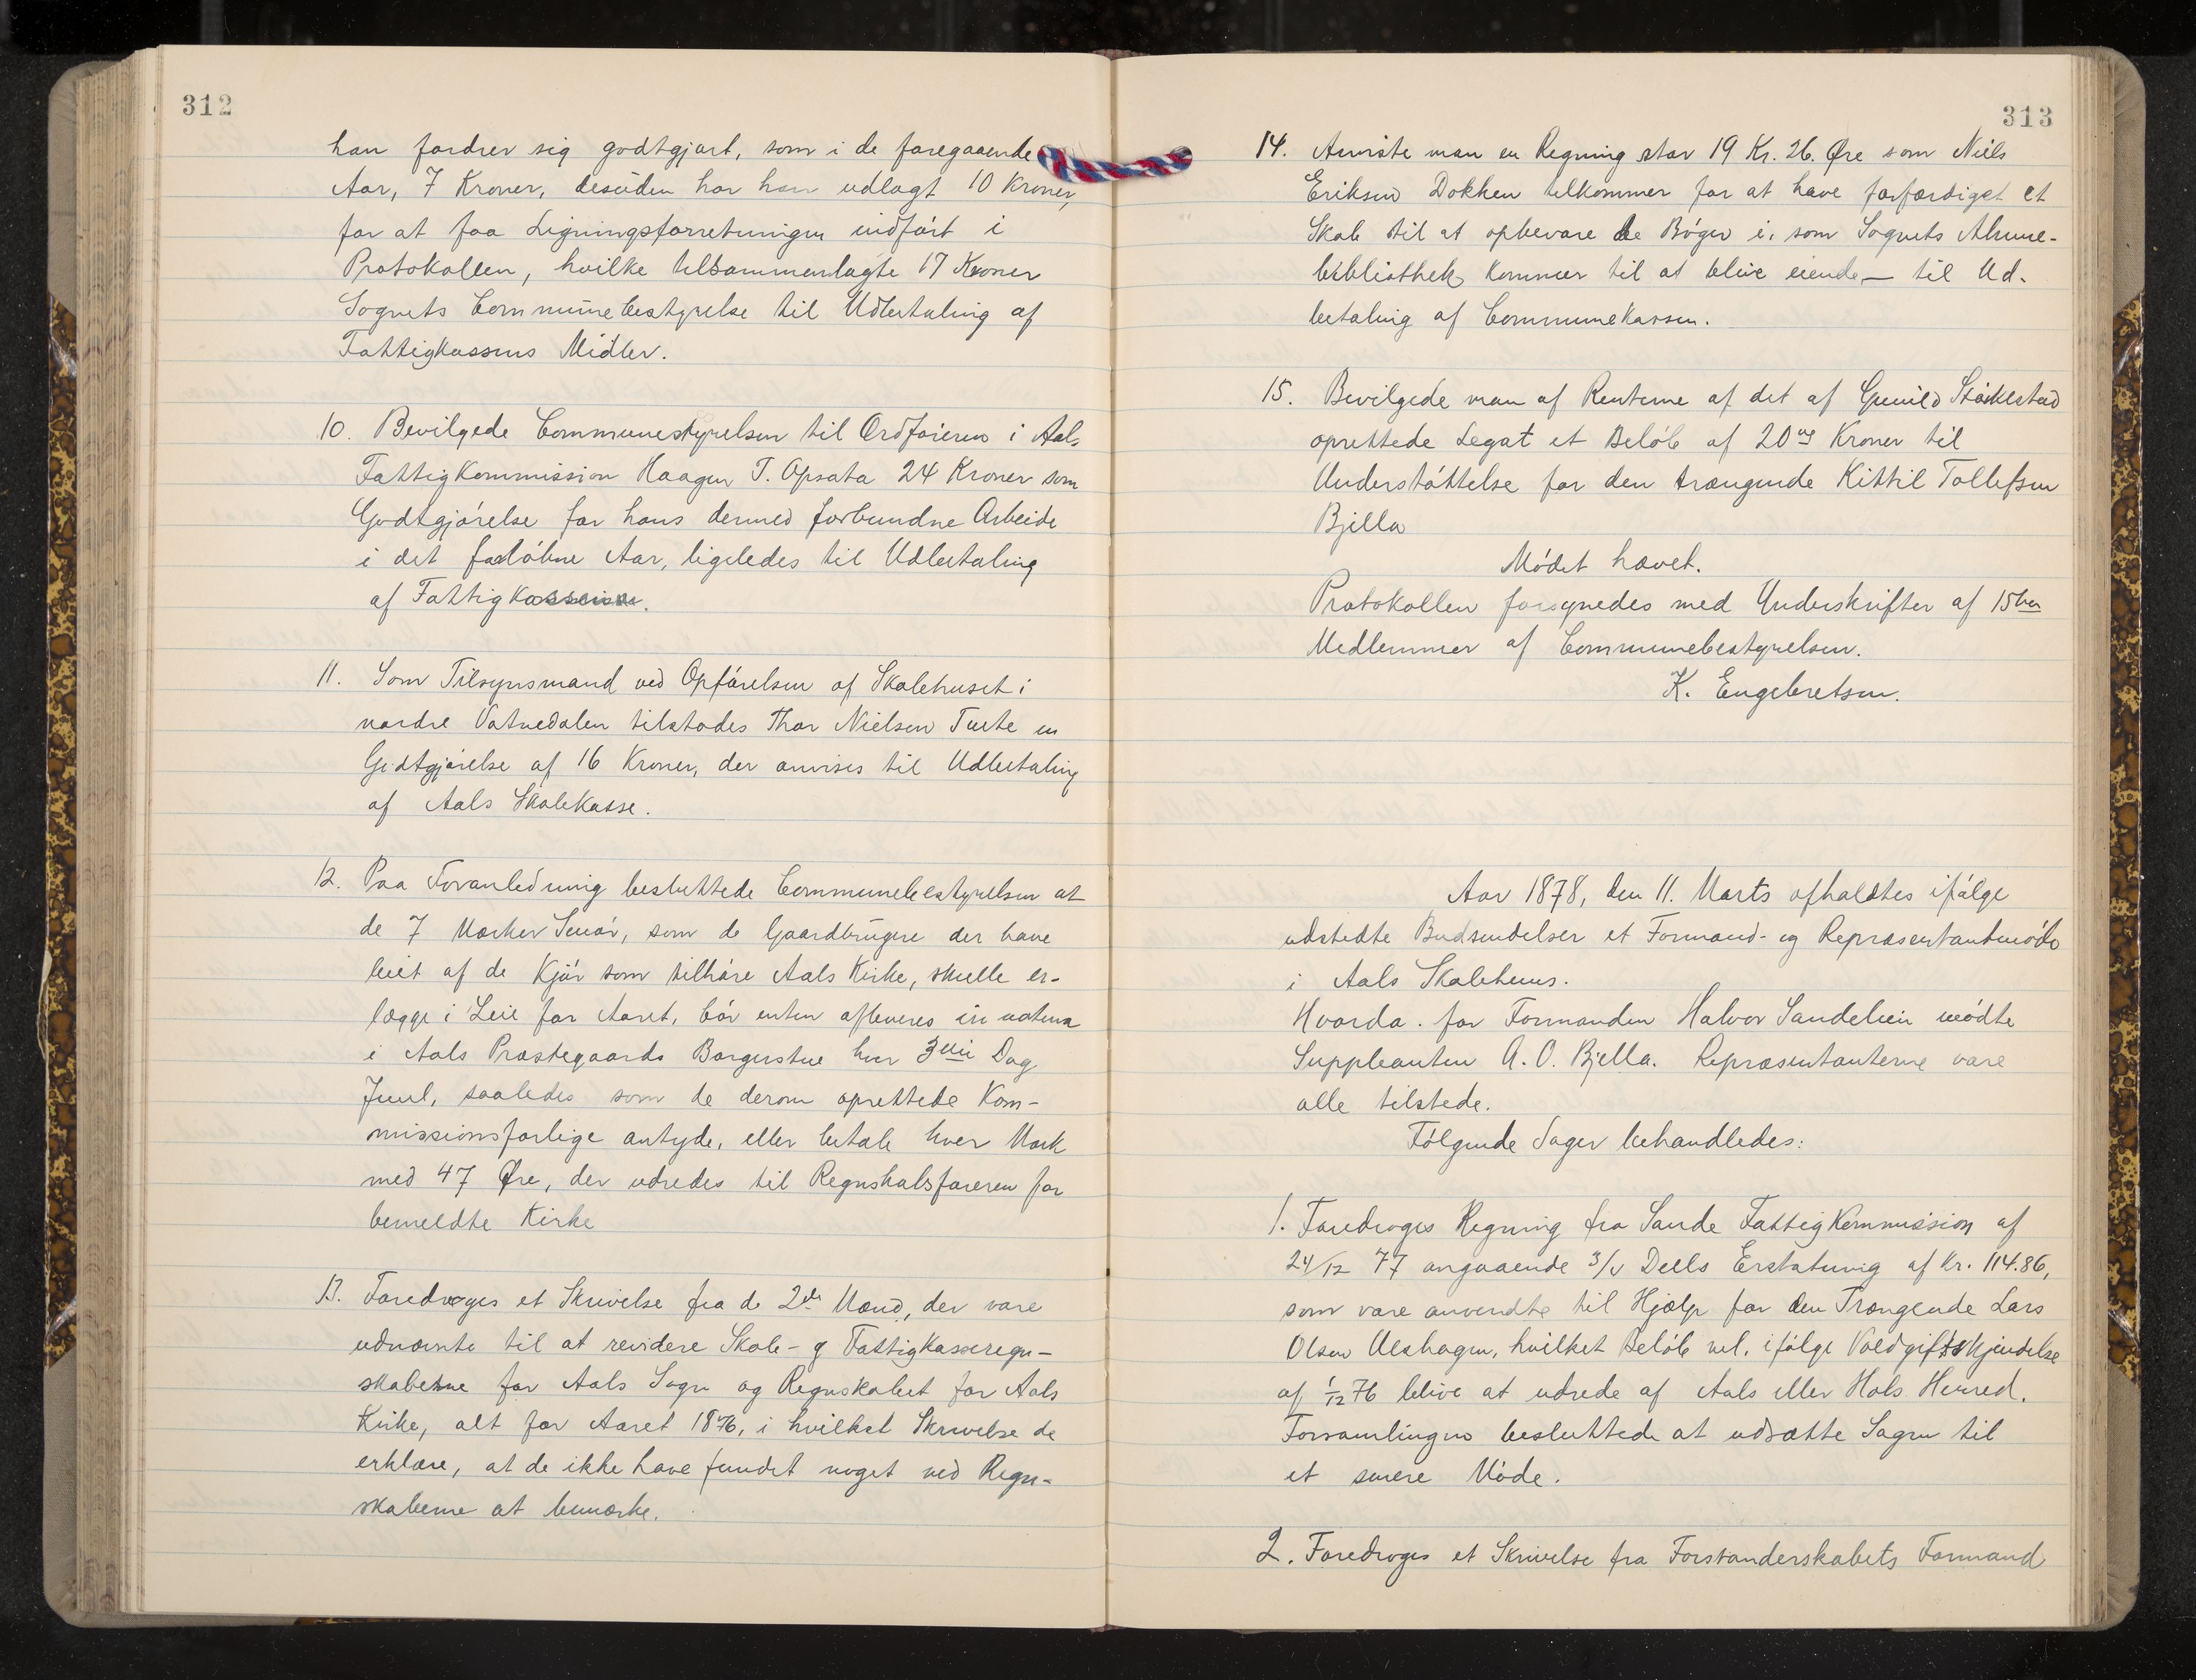 312
han fordrer sig godtgjort, som i de foregaaende
Aar, 7 Kroner, desuden har han udlagt 10 Kroner,
for at faa Ligningsforretningen indført i
Protokollen, hvilke tilsammenlagte 17 Kroner
Sognets Communebestyrelse til Udbetaling af
Fattigkassens Midler.
10. Bevilgede Communestyrelsen til Ordføreren i Aals
Fattigkommission Haagen T. Opsata 24 Kroner som
Godtgjørelse for hans dermed forbundne Arbeide
i det forløbne Aar, ligeledes til Udbetaling
af Fattigkassen.
11. Som Tilsynsmand ved Opførelsen af Skolehuset i
nordre Vatnedalen tilstodes Thor Nielsen Tuste en
Godtgjørelse af 16 Kroner, der anvises til Udbetaling
af Aals Skolekasse.
12. Paa Foranledning besluttede Communebestyrelsen at
de 7 Marker Smør, som de Gaardbrugere der have
leiet af de Kjør som tilhøre Aals Kirke, skulle er-
lægge i Leie for Aaret, bør enten afleveres in natura
i Aals Præstegaards Borgerstue hver 3die Dag
Juul, saaledes som de derom oprettede Kom-
missionsforlige antyde, eller betale hver Mark
med 47 Øre, der udredes til Regnskabsføreren for
bemeldte Kirke
13. Foredroges et Skrivelse fra de 2de Mænd, der vare
udnævnte til at revidere Skole- og Fattigkasseregn-
skaberne for Aals Sogn og Regnskabet for Aals
Kirke, alt for Aaret 1876, i hvilket Skrivelse de
erklære, at de ikke have fundet noget ved Regn-
skaberne at bemærke.
313
14. Anviste man en Regning stor 19 Kr. 26. Øre som Niels
Eriksen Dokken tilkommer for at have forfærdiget et
Skab til at opbevare de Bøger i, som Sognets Almue-
bibliothek kommer til at blive eiende — til Ud-
betaling af Communekassen.
15. Bevilgede man af Renterne af det af Gunild Støikestad
oprettede Legat et Beløb af 20ve Kroner til
Understøttelse for den trængende Kittil Tollefsen
Bjella
Mødet hævet.
Protokollen forsynedes med Underskrifter af 15ten
Medlemmer af Communebestyrelsen.
K. Engebretsen.
Aar 1878, den 11. Marts afholdtes ifølge
udstedte Budsendelser et Formand- og Repræsentantmøde
i Aals Skolehuus.
Hvorda. for Formanden Halvor Sandelien mødte
Suppleanten A. O. Bjella. Repræsentanterne vare
alle tilstede.
Følgende Sager behandledes:
1. Foredroges Regning fra Sande Fattigkommission af
24/12 77 angaaende 3/4 Deels Erstatning af Kr. 114.86,
som vare anvendte til Hjælp for den Trængende Lars
Olsen Ulshagen, hvilket Beløb vel, ifølge Voldgiftskjendelse
af 1/12 76 blive at udrede af Aals eller Hols Herred.
Forsamlingen besluttede at udsætte Sagen til
et senere Møde.
2. Foredroges et Skrivelse fra Forstanderskabets Formand